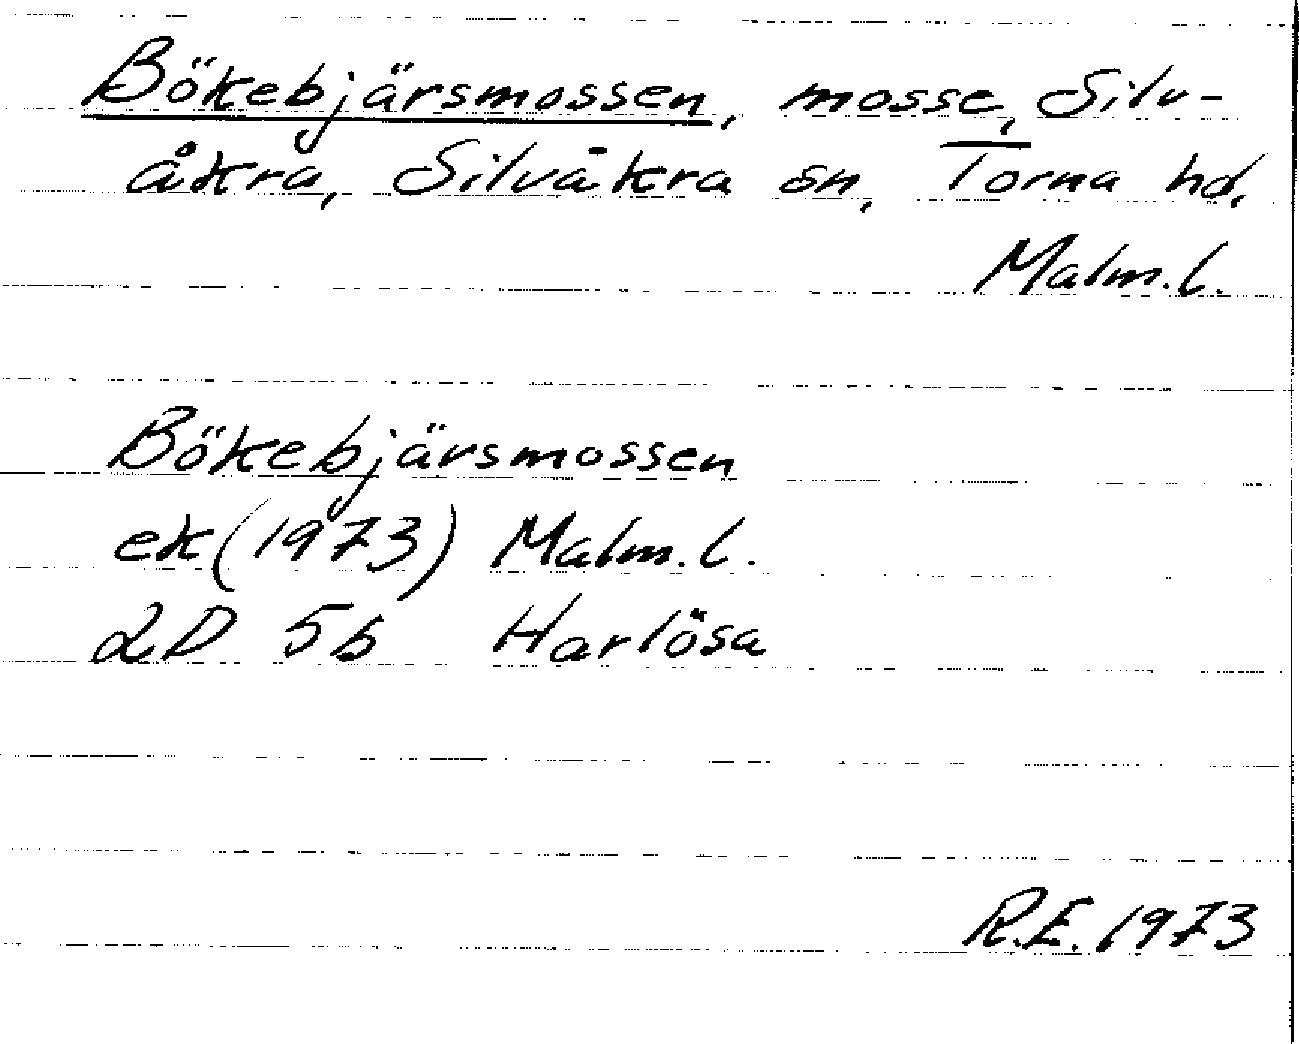 Bökebjärsmossen, mosse, Silv-
åkra, Silvåkra sn, Torna hd,
Malm.l.
Bökebjärsmossen
ek (1973) Malm.l.
2D 5b Harlösa
R.E. 1973